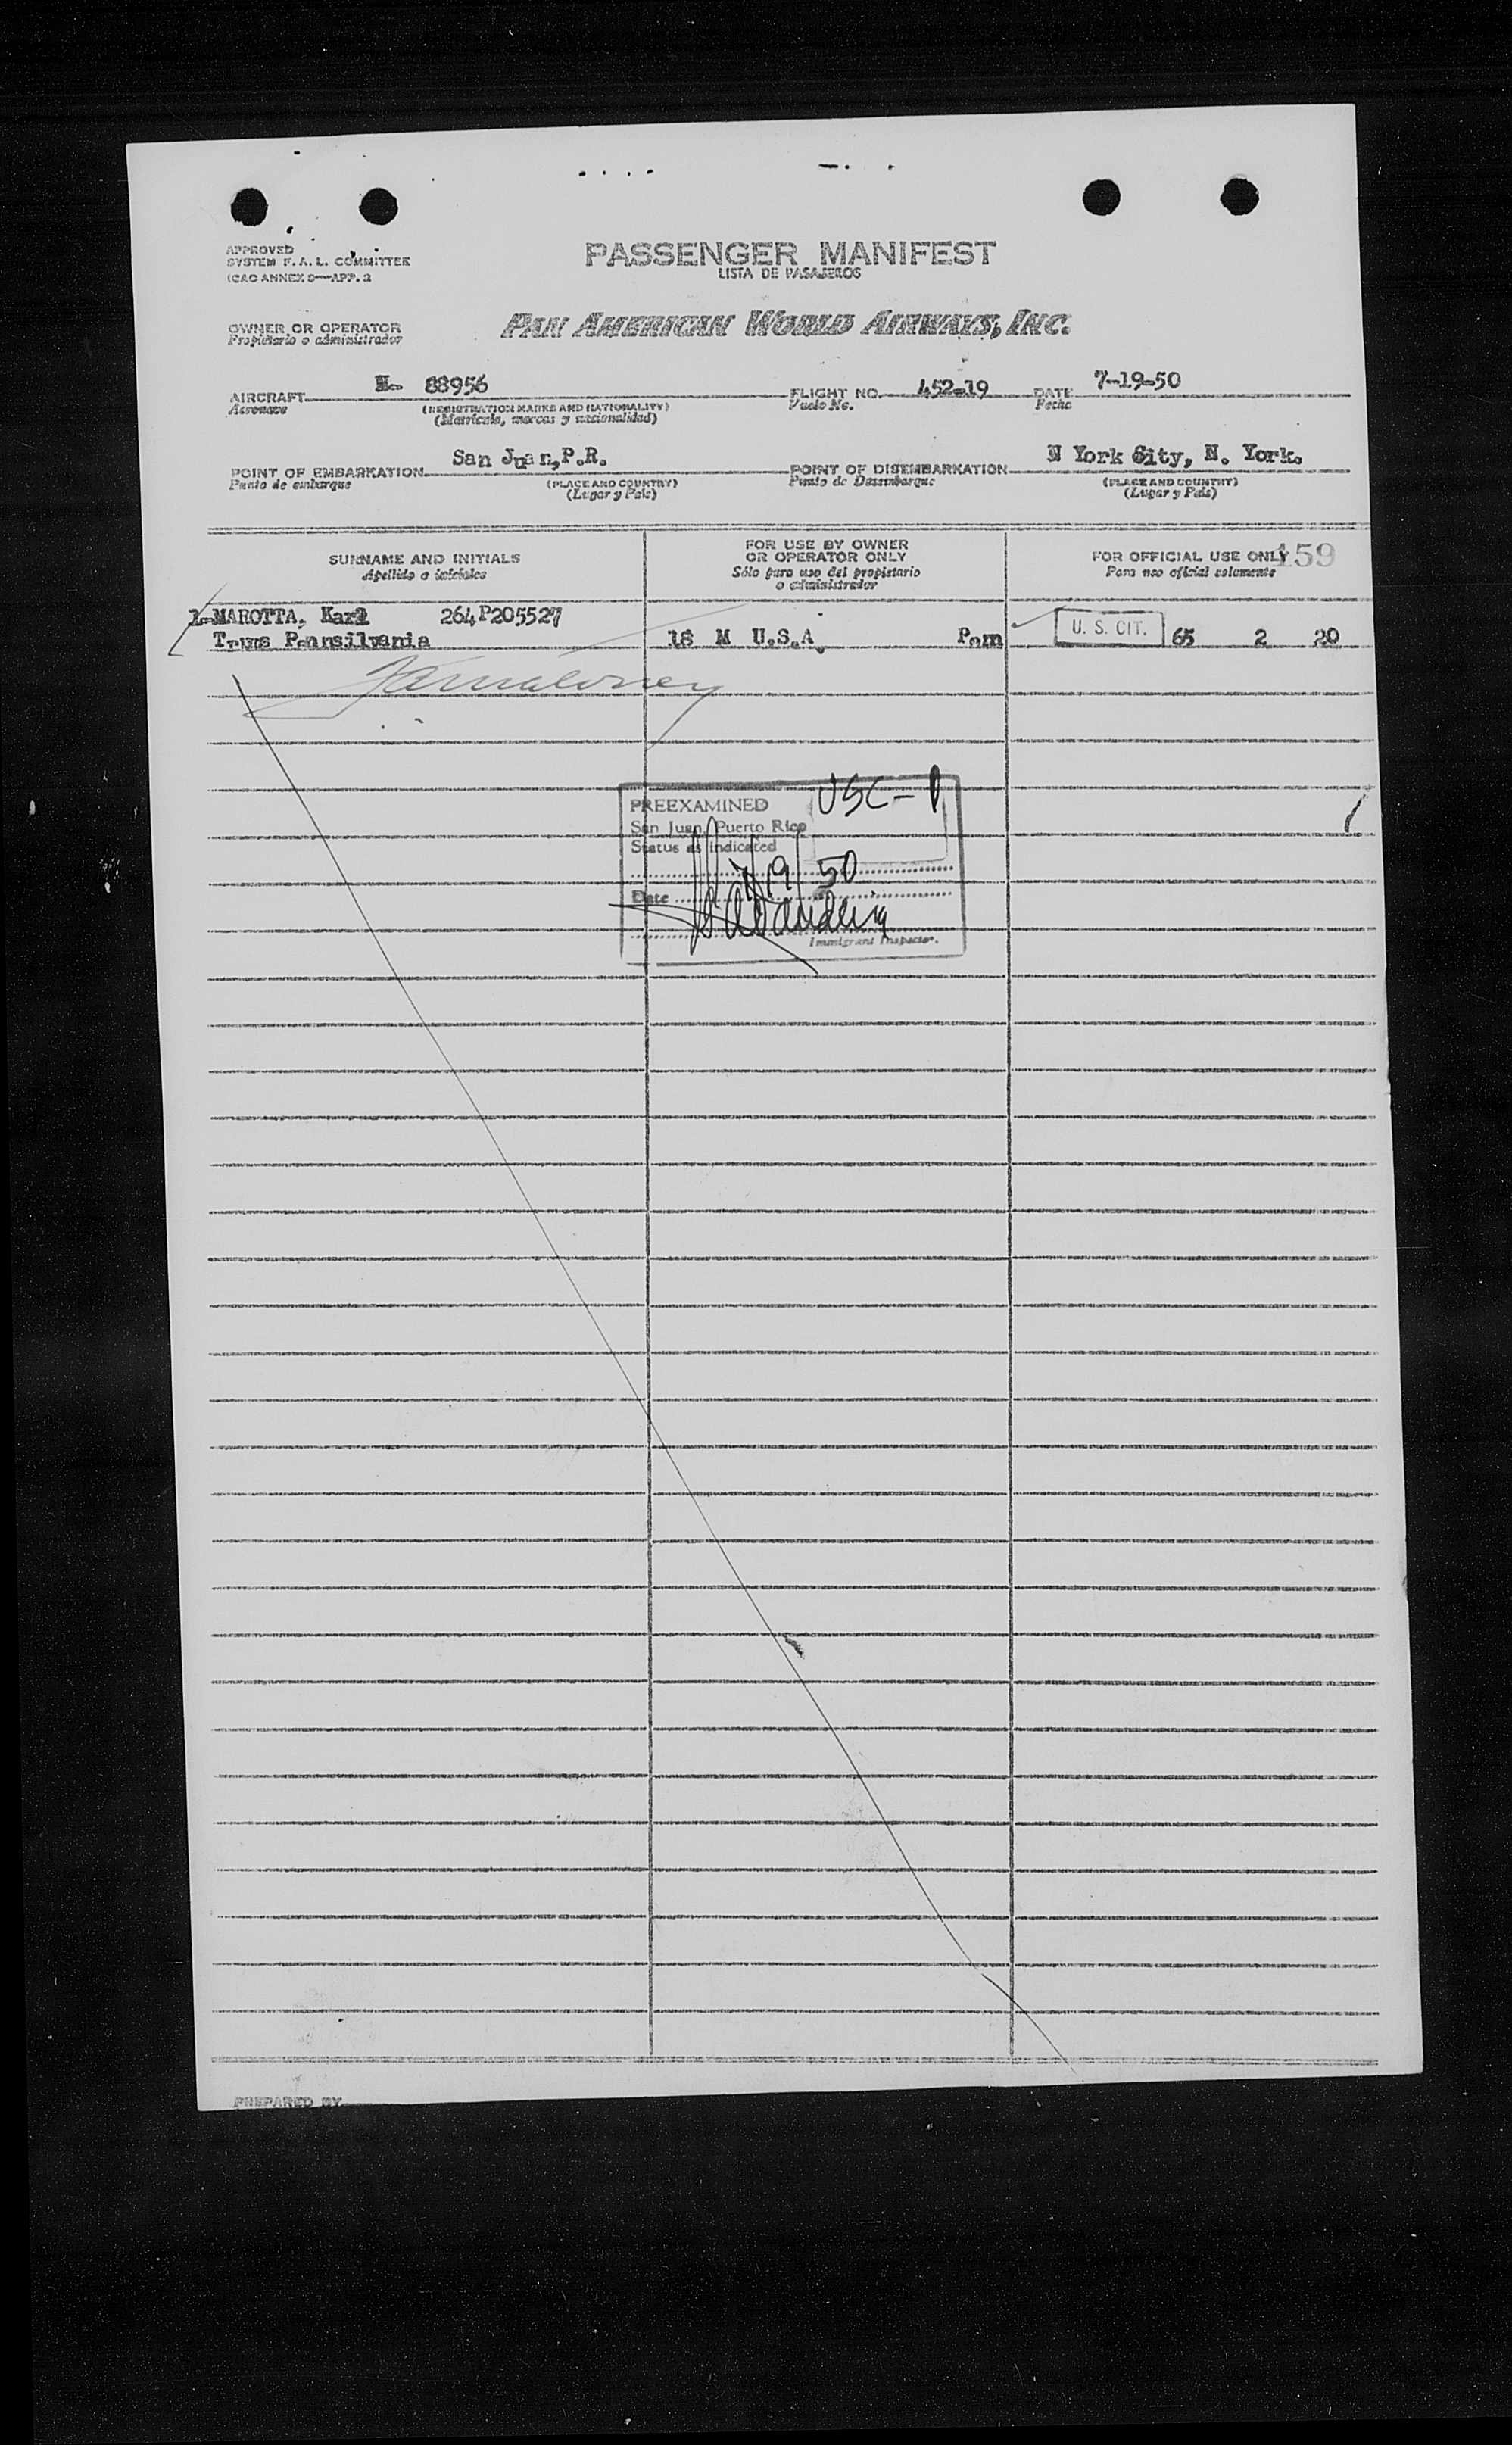 APPROVED
SYSTEM F. A. L. COMMITTEE
ICAO ANNEX 9—APP. 2
PASSENGER MANIFEST
LISTA DE PASAJEROS
OWNER OR OPERATOR
Propietario o administrador
PAN AMERICAN WORLD AIRWAYS, INC.
AIRCRAFT N- 88956
Aeronave
(REGISTRATION MARKS AND NATIONALITY)
(Matrícula, marcas y nacionalidad)
FLIGHT NO. 452-19
Vuelo No.
DATE 7-19-50
Fecha
POINT OF EMBARKATION San Juan,P.R.
Punto de embarque
(PLACE AND COUNTRY)
(Lugar y País)
POINT OF DISEMBARKATION N York City, N. York.
Punto de Desembarque
(PLACE AND COUNTRY)
(Lugar y País)
SURNAME AND INITIALS
Apellido e iniciales
FOR USE BY OWNER
OR OPERATOR ONLY
Sólo para uso del propietario
o administrador
FOR OFFICIAL USE ONLY
Para uso oficial solamente
159
1-MAROTTA, Karl 264P205527
Pennsilvania 18 M U.S.A. U. S. CIT. 65 2 20
PREEXAMINED USC-1
San Juan, Puerto Rico
Status as indicated
Date 7/19/50
Immigrant Inspector.
PREPARED BY